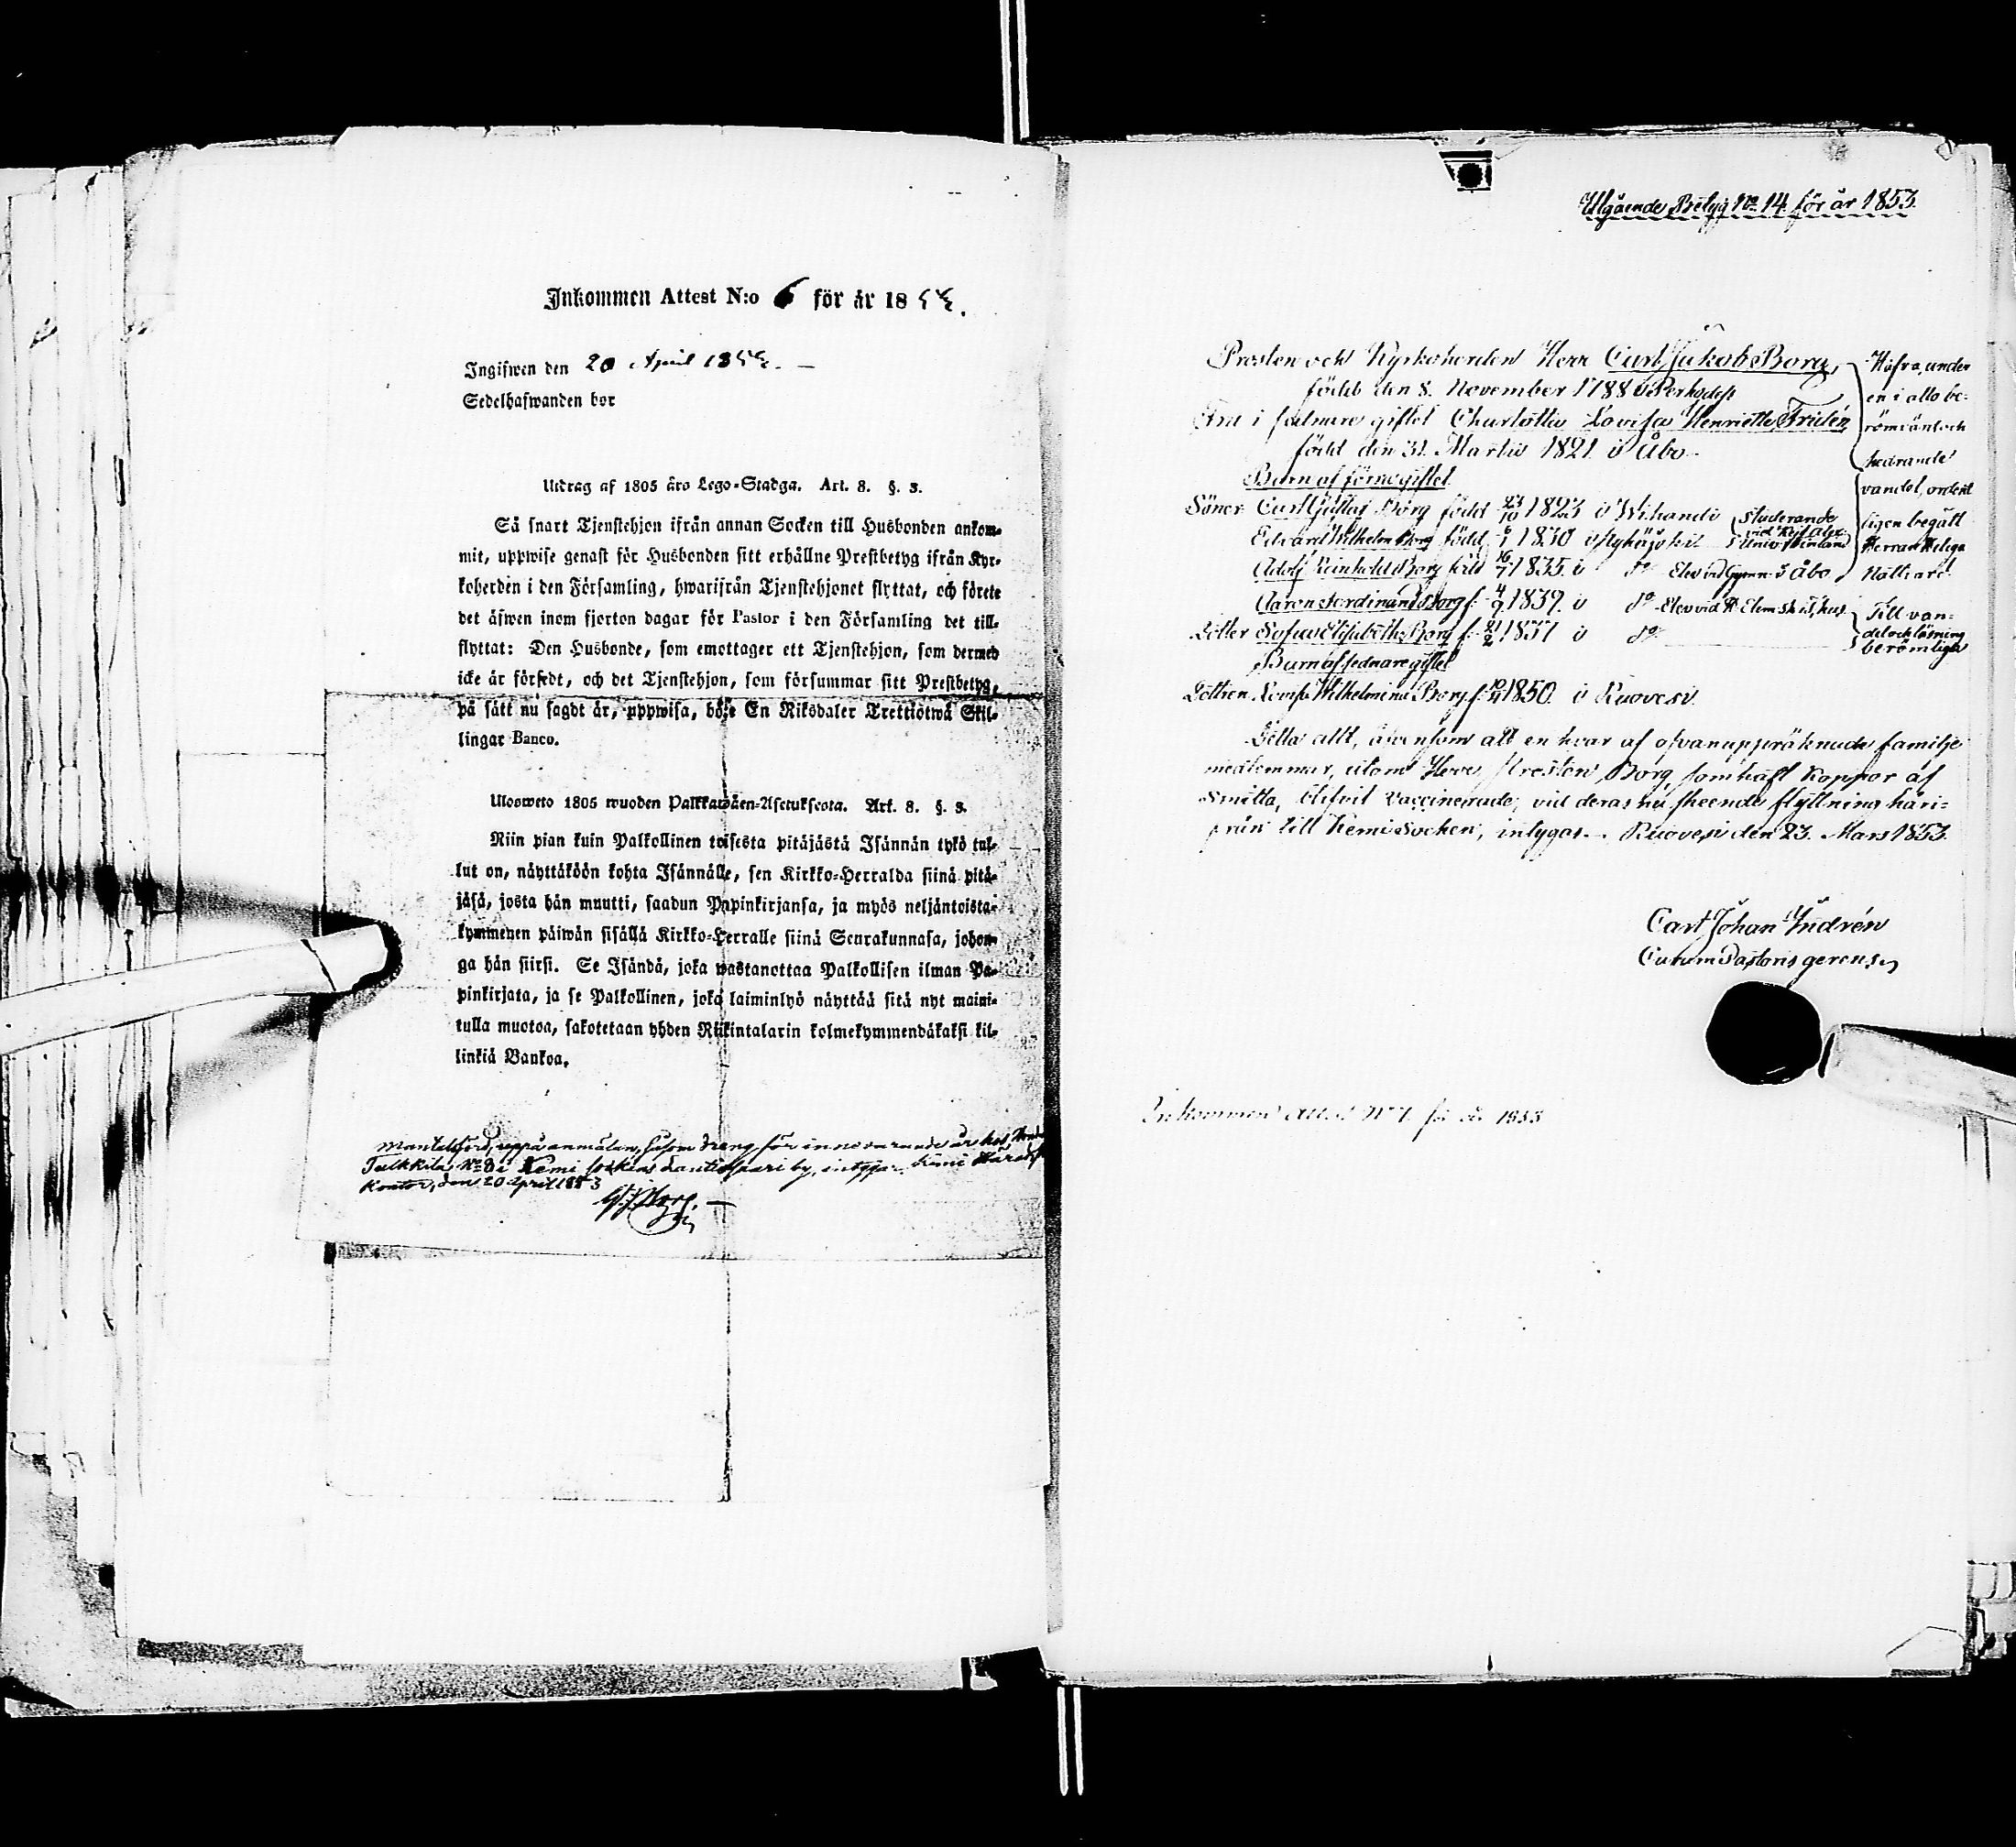 Inkommen Attest N:o 6 för år 18
Ingifwen den 20 April
Sedelhafwanden bor
Utdrag af 1805 års Lego-Stadga. Art. 8. §. 3.
Så snart Tjenstehjon ifrån annan Socken till Husbonden ankom-
mit, uppwise genast för Husbonden sitt erhållne Prestbetyg ifrån Kyr-
koherden i den Församling, hwarifrån Tjenstehjonet flyttat, och förete
det äfwen inom fjorton dagar för Pastor i den Församling det till-
flyttat: Den Husbonde, som emottager ett Tjenstehjon, som dermed
icke är försedt, och det Tjenstehjon, som försummar sitt Prestbetyg,
på sätt nu sagdt är, uppwisa, böte En Riksdaler Trettiotwå Skil-
lingar Banco.
Ulosweto 1805 wuoden Palkkawäen-Asetuksesta. Art. 8. §. 3.
Niin pian kuin Palkollinen toisesta pitäjästä Isännän tykö tul-
lut on, näyttäköön kohta Isännälle, sen Kirkko-Herralda siinä pitä-
jäsä, josta hän muutti, saadun Papinkirjansa, ja myös neljäntoista-
kymmenen päiwän sisällä Kirkko-Herralle siinä Seurakunnasa, johon-
ga hän siirsi. Se Isändä, joka wastanottaa Palkollisen ilman Pa-
pinkirjata, ja se Palkollinen, joka laiminlyö näyttää sitä nyt maini-
tulla muotoa, sakotetaan yhden Riikintalarin kolmekymmendäkaksi kil-
linkiä Bankoa.
Mantalsförd, uppå anmälan, såsom dräng för innevarande år hos
Tulkkila, No 8 i Kemi sockens Lautiosaari by, intygar. Kemi Härads
Kontor, den 20 April 1853
Utgående Betyg No 14 för år 1853.
Prosten och Kyrkoherden Herr Carl Jakob Borg,
född den 8. November 1788 i
i sednare giftet Charlotta Lovisa Henrietta Fridén
född den 31. Martii 1821. i Åbo.
Barn af förra giftet
Söner Carl Gustaf Borg född 23/10 1823 i Wihandi Studerande vid Kejs. Alex. Univ. i Finland
Edvard Wilhelm Borg född 6/1 1830 i
Adolf Reinhold Borg född 16/7 1835. i do Elev vid Gymn. i Åbo
Aaron Ferdinand Borg f. 4/9 1839. i do Elev vid
Dotter Sofia Elisabeth Borg f. 21/2 1837 i do
Barn af sednare giftet
Dottren Lovisa Wilhelmina Borg f. 1850. i Ruovesi.
Hafva, under
en i allo be-
römvänd och
hedrande
vandel, ordent
ligen begått
Herrans Heliga
Nattvard.
Till van-
del och läsning
berömliga
Detta allt, äfvensom att en hvar af ofvanuppräknade familje
medlemmar, utom Herr Prosten Borg, som haft koppor af
smitta, blifvit vaccinerade, vid deras nu skeende flyttning häri-
från till Kemi Socken, intygas. Ruovesi den 23. Mars 1853.
Carl Johan Indrén
Curam Pastoris gerens.
Inkommen Attest No 7. för år 1853